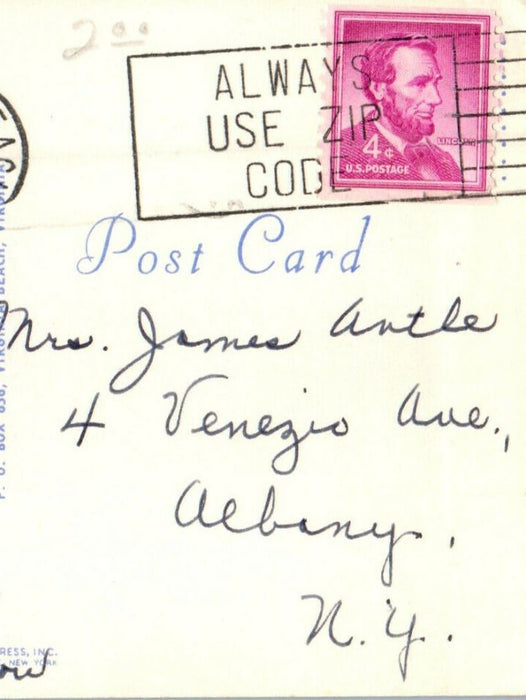 2.00
ALWAYS
USE ZIP
CODE
LINCOLN
4¢
U.S. POSTAGE
Post Card
Mrs. James Antle
4 Venezio Ave.,
Albany,
N.Y.
P. O. BOX 656, VIRGINIA BEACH, VIRGINIA
RESS, INC.
NEW YORK